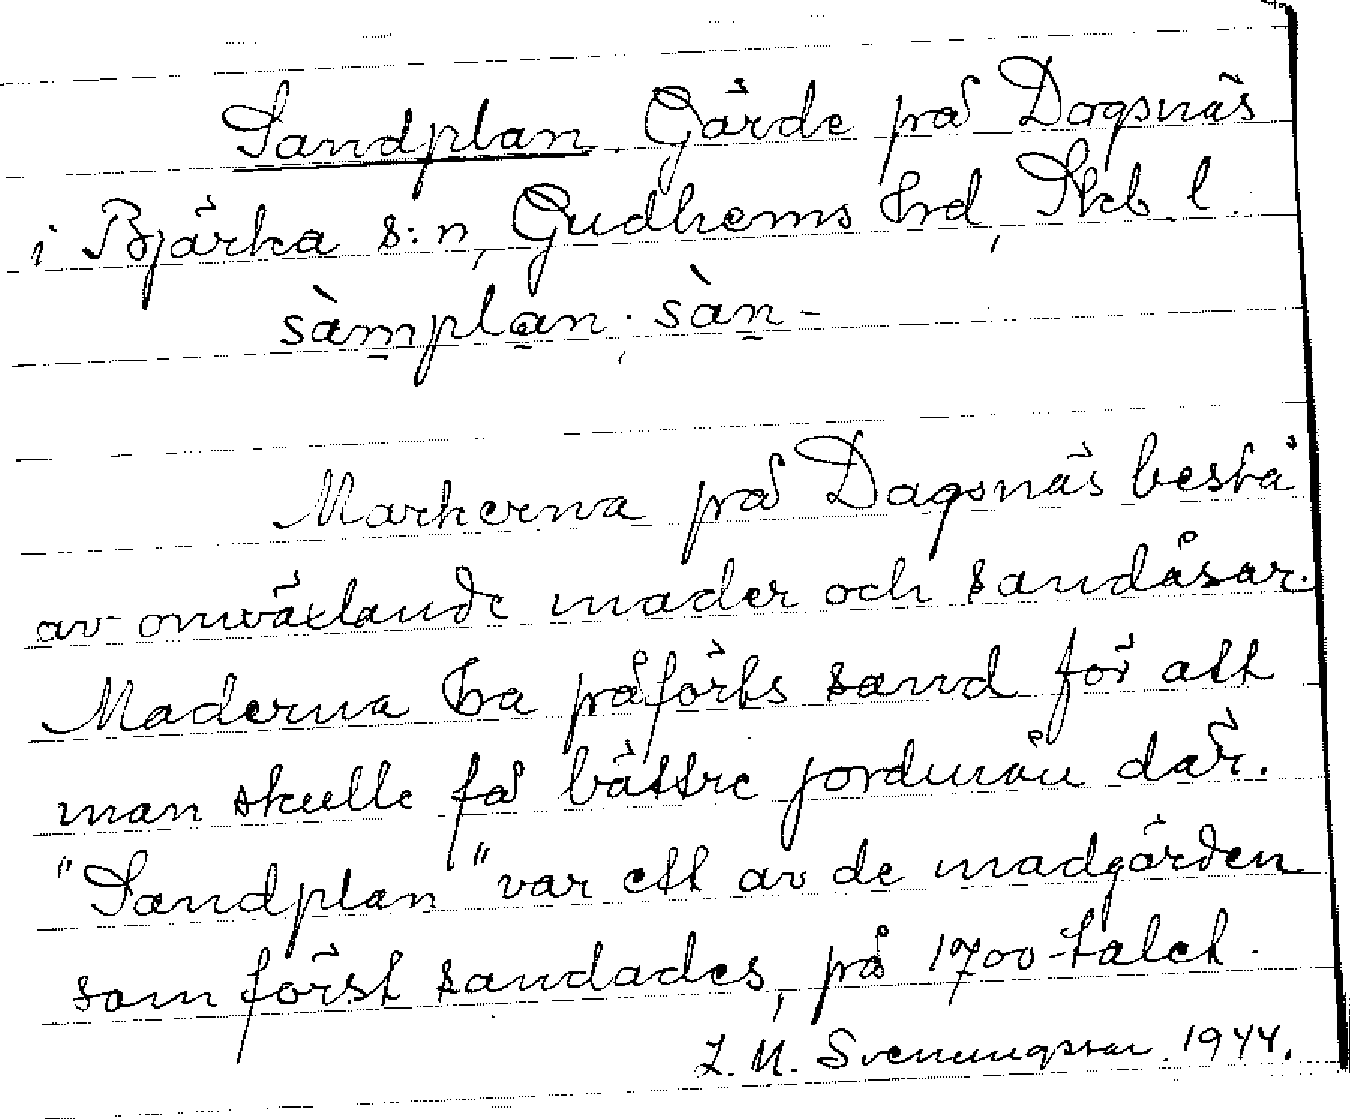 Sandplan. Gärde på Dagsnäs
i Bjärka s:n, Gudhems hrd, Skb. l.
sàmplan; sàn-
Markerna på Dagsnäs bestå
av omväxlande mader och sandåsar.
Maderna ha påförts sand för att
man skulle få bättre jordmån där.
"Sandplan" var ett av de madgärden
som först sandades, på 1700-talet.
L. M. Svenungsson 1944.